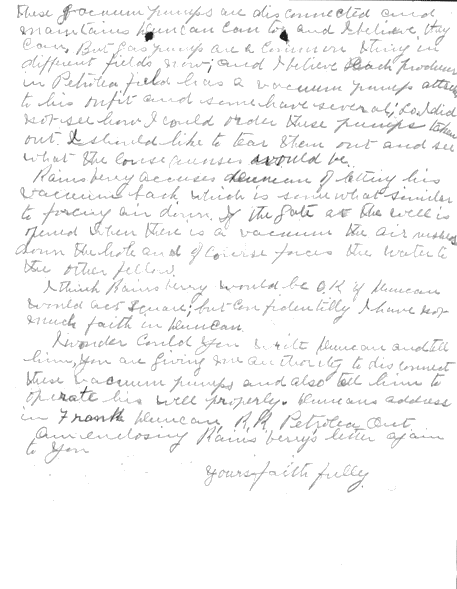 these vacuum pumps are disconnected and
maintains Duncan can too and I believe they
can. But Gas pumps are a common thing in
different fields now; and I believe each producer
in Petrolea field has a vacuum pump attach
to his outfit and some have several; so I did
not see how I could order these pumps taken
out. I should like to tear them out and see
what the consequenses would be.
Rainsberry accuses Duncan of letting his
vacuum back which is some what similar
to forcing air down. If the gate at the well is
opened when there is a vacuum the air rushes
down the hole and of course forces the water to
the other fellow.
I think Rainsberry would be O.K if Duncan
would act square; but confidentilly I have not
much faith in Duncan.
I wonder Could you write Duncan and tell
him, you are giving me authority to disconnect
these vacuum pumps and also tell him to
operate his well properly. Duncans address
in Frank Duncan, R.R. Petrolea Ont.
Am enclosing Rainsberry's letter again
to you
Yours faithfully